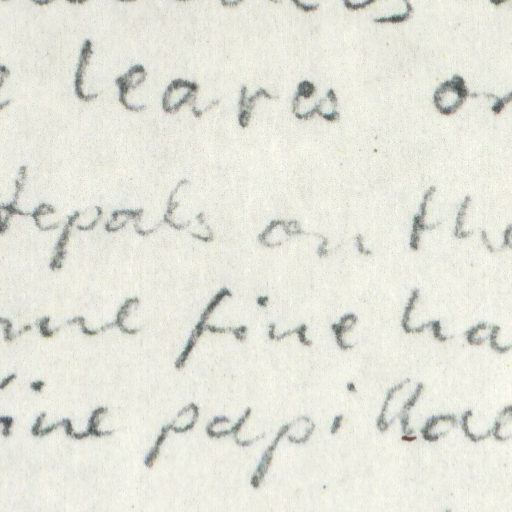 leaves on
tepals on the
fine ha
fine papillae